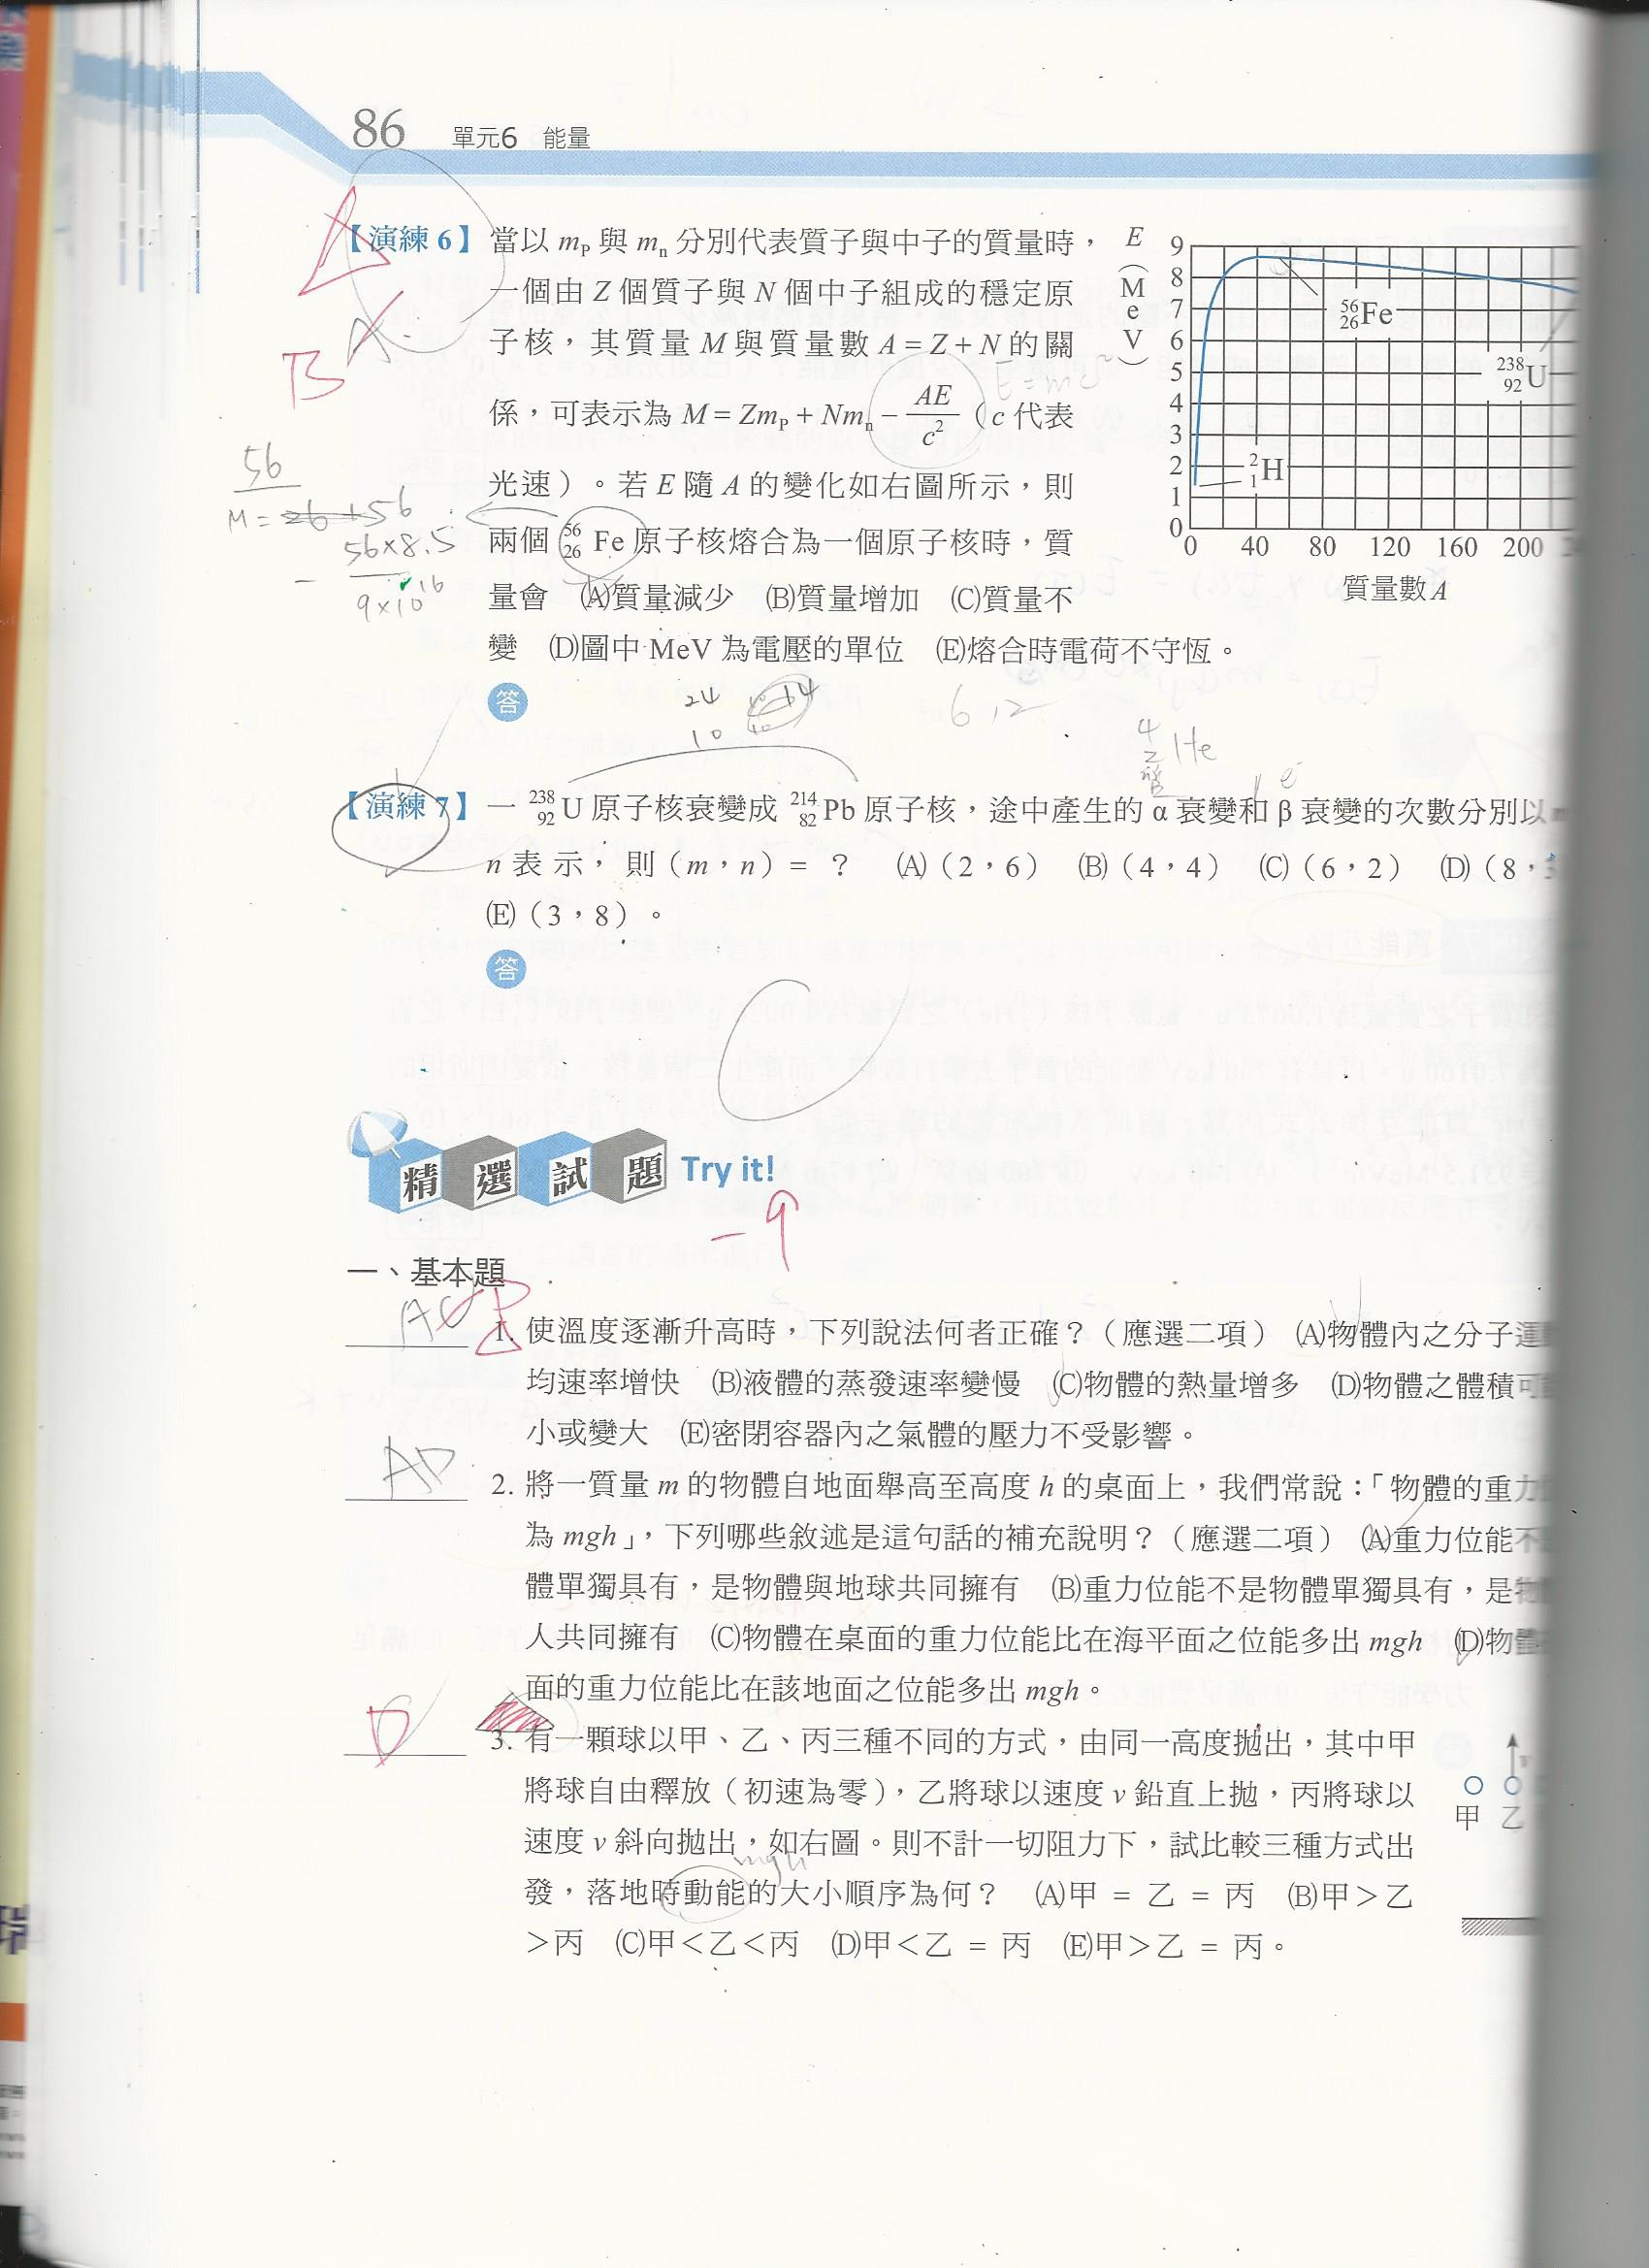 86 單元6 能量
【演練 6】當以 mP 與 mn 分別代表質子與中子的質量時，
一個由 Z 個質子與 N 個中子組成的穩定原
子核，其質量 M 與質量數 A = Z + N 的關
係，可表示為 M = ZmP + Nmn − AE/c²（c 代表
光速）。若 E 隨 A 的變化如右圖所示，則
兩個 56 26 Fe 原子核熔合為一個原子核時，質
量會 (A)質量減少 (B)質量增加 (C)質量不
變 (D)圖中 MeV 為電壓的單位 (E)熔合時電荷不守恆。
E（MeV）
9
8
7
6
5
4
3
2
1
0
56 26 Fe
238 92 U
2 1 H
0 40 80 120 160 200
質量數 A
B
A
E=mc²
56
M = 26 + 56
56×8.5
− 9×10 16
答
24
10
6,2
4 2 He
e⁻
【演練 7】一 238 92 U 原子核衰變成 214 82 Pb 原子核，途中產生的 α 衰變和 β 衰變的次數分別以
n 表示，則（m，n）= ？ (A)（2，6） (B)（4，4） (C)（6，2） (D)（8，
(E)（3，8）。
答
C
精選試題 Try it!
−9
一、基本題
AC D
1. 使溫度逐漸升高時，下列說法何者正確？（應選二項） (A)物體內之分子運
均速率增快 (B)液體的蒸發速率變慢 (C)物體的熱量增多 (D)物體之體積可
小或變大 (E)密閉容器內之氣體的壓力不受影響。
AD
2. 將一質量 m 的物體自地面舉高至高度 h 的桌面上，我們常說：「物體的重力
為 mgh」，下列哪些敘述是這句話的補充說明？（應選二項） (A)重力位能不
體單獨具有，是物體與地球共同擁有 (B)重力位能不是物體單獨具有，是物
人共同擁有 (C)物體在桌面的重力位能比在海平面之位能多出 mgh (D)物體
面的重力位能比在該地面之位能多出 mgh。
D
3. 有一顆球以甲、乙、丙三種不同的方式，由同一高度拋出，其中甲
將球自由釋放（初速為零），乙將球以速度 v 鉛直上拋，丙將球以
速度 v 斜向拋出，如右圖。則不計一切阻力下，試比較三種方式出
mgh
發，落地時動能的大小順序為何？ (A)甲 = 乙 = 丙 (B)甲＞乙
＞丙 (C)甲＜乙＜丙 (D)甲＜乙 = 丙 (E)甲＞乙 = 丙。
v
甲 乙